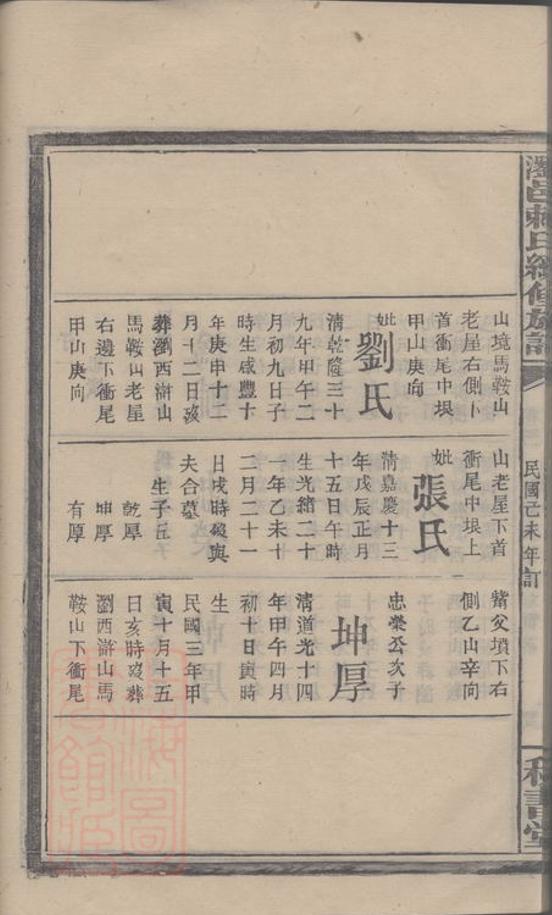 瀏邑賴氏續修族譜
民國己未年訂
山境馬鞍山
老屋右側下
首衝尾中垠
甲山庚向
妣劉氏
清乾隆三十
九年甲午二
月初九日子
時生咸豐十
年庚申十二
月十二日歿
葬瀏西滸山
馬鞍山老屋
右邊下衝尾
甲山庚向
山老屋下首
衝尾中垠上
妣張氏
清嘉慶十三
年戊辰正月
十五日午時
生光緒二十
一年乙未十
二月二十一
日戌時歿與
夫合墓
生子三
乾厚
坤厚
有厚
觜父墳下右
側乙山辛向
忠榮公次子
坤厚
清道光十四
年甲午四月
初十日寅時
生
民國三年甲
寅十月十五
日亥時歿葬
瀏西滸山馬
鞍山下衝尾